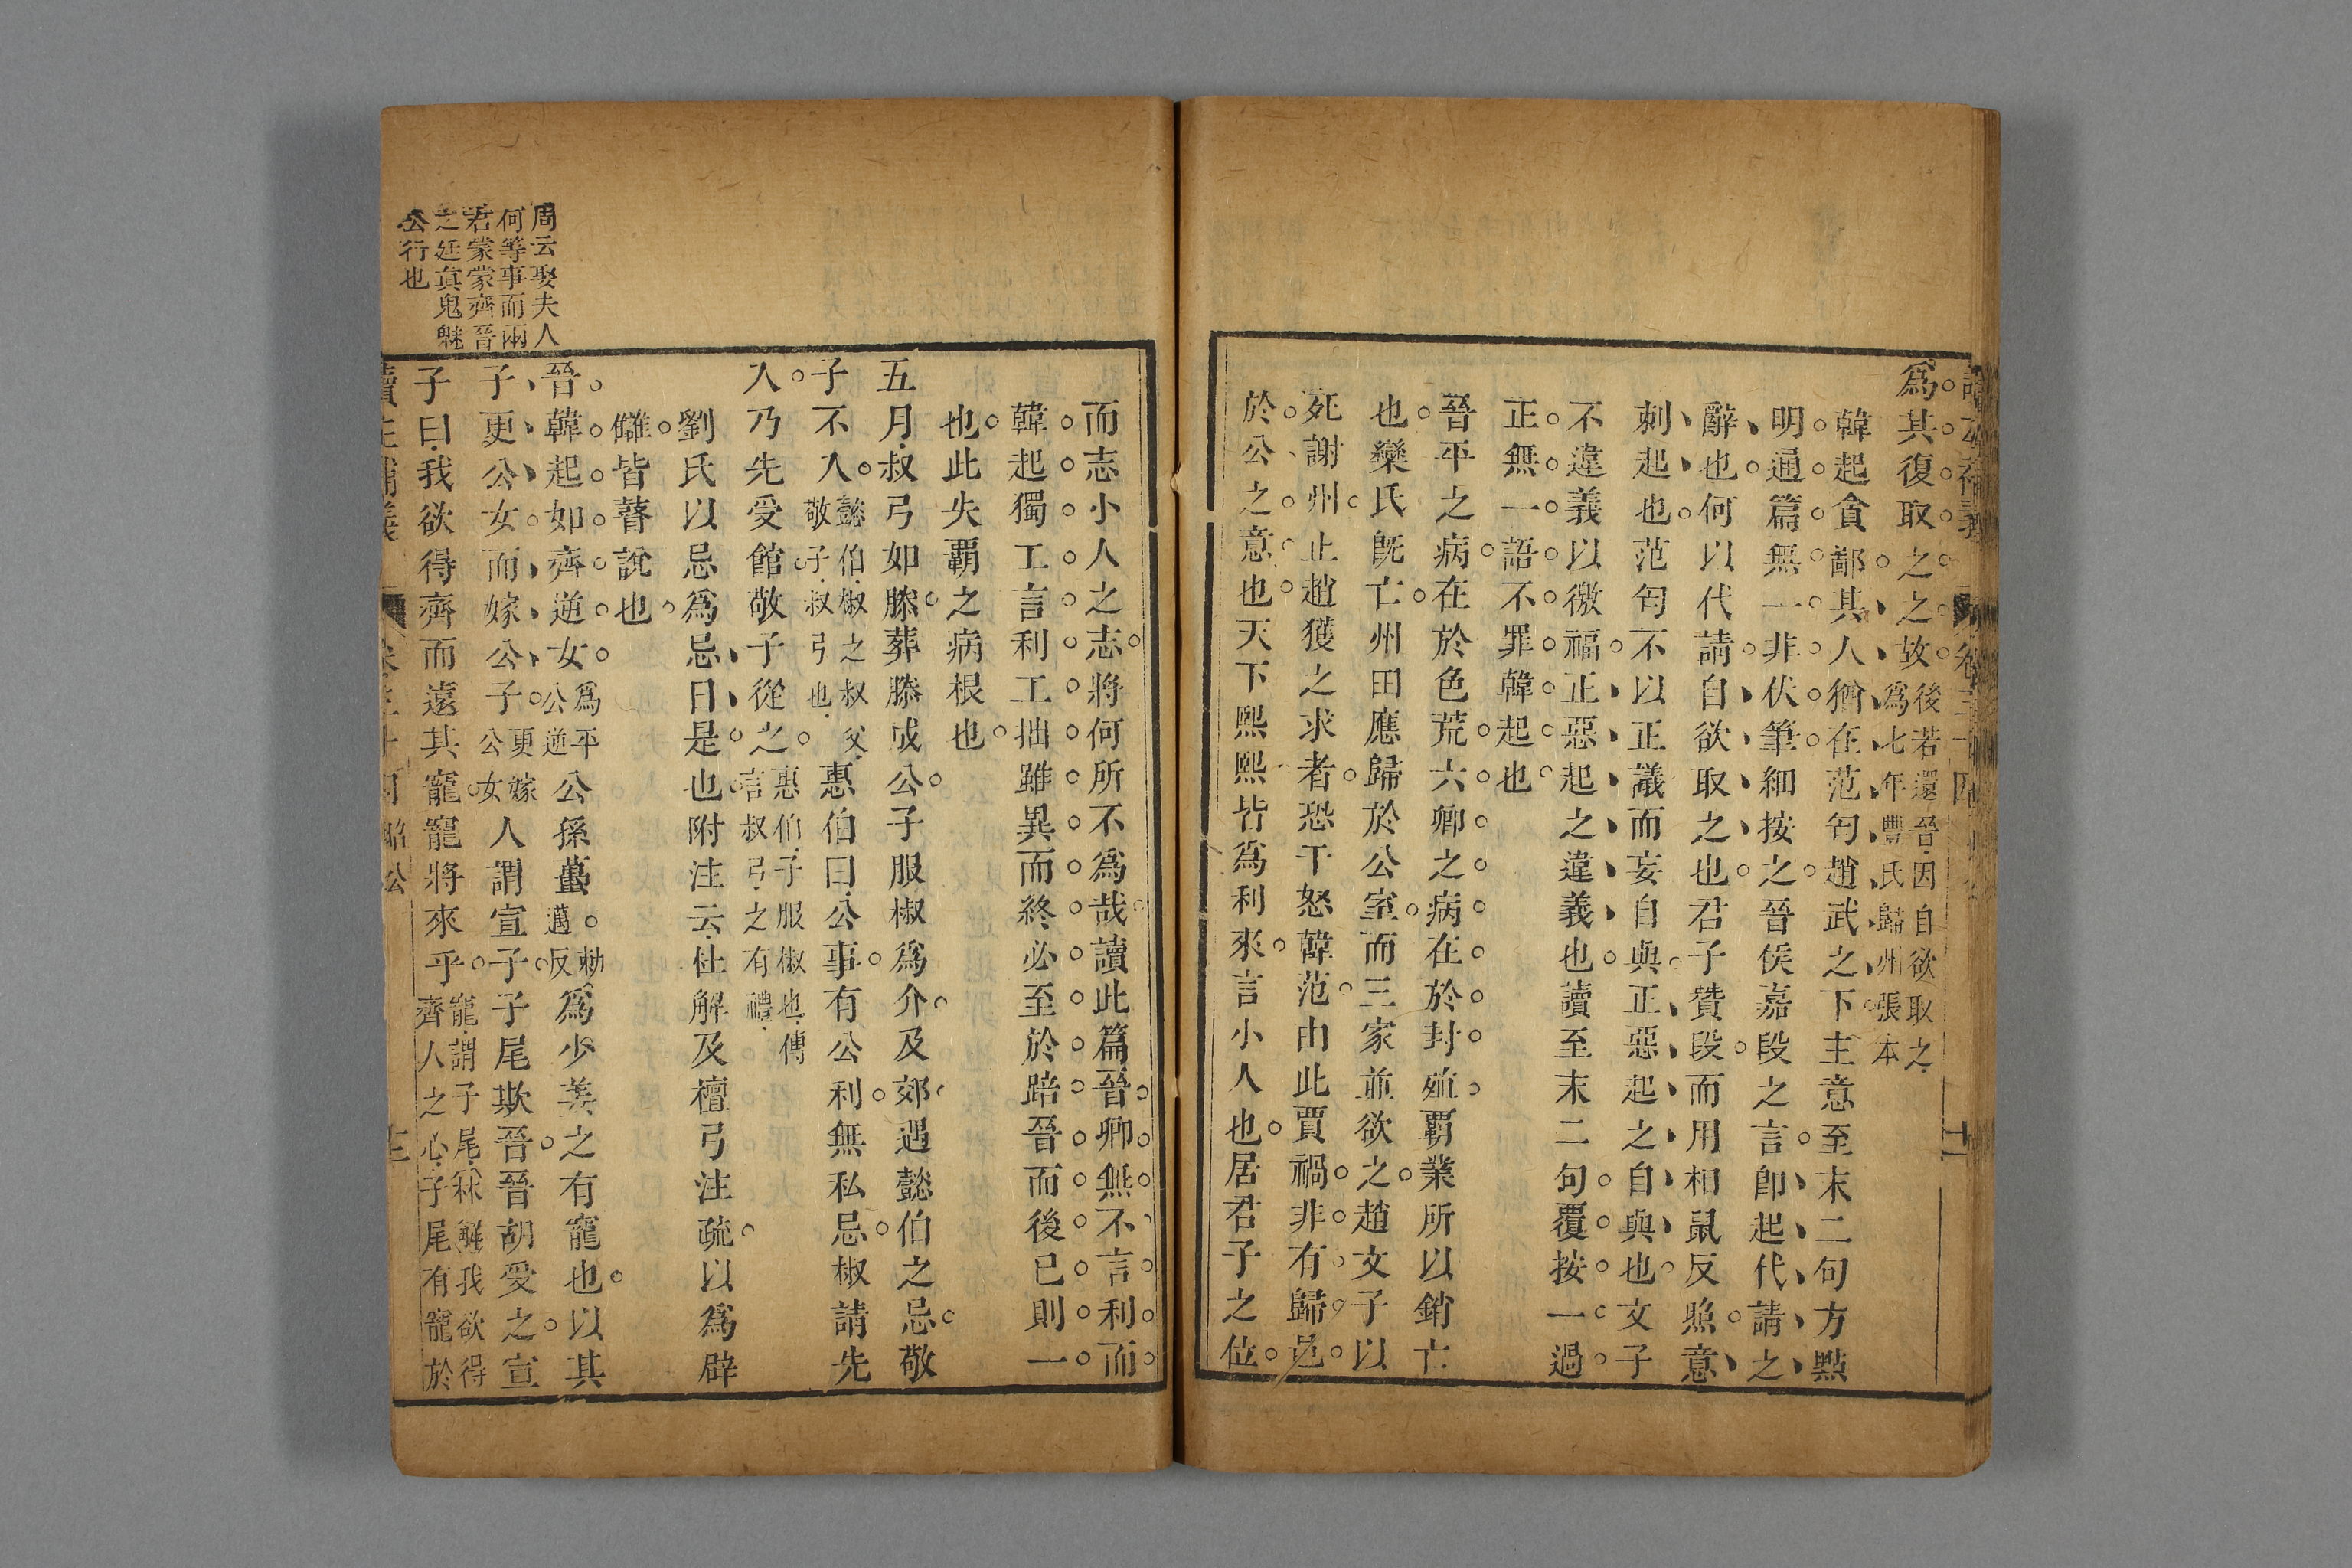 爲其復取之之故後若還晉因自欲取之爲七年豐氏歸州張本
韓起貪鄙其人猶在范匄趙武之下主意至末二句方點
明通篇無一非伏筆細按之晉侯嘉段之言卽起代請之
辭也何以代請自欲取之也君子贊段而用相鼠反照意
刺起也范匄不以正議而妄自與正惡起之自與也文子
不違義以徼福正惡起之違義也讀至末二句覆按一過
正無一語不罪韓起也
晉平之病在於色荒六卿之病在於封殖覇業所以銷亡
也欒氏旣亡州田應歸於公室而三家並欲之趙文子以
死謝州止趙獲之求者恐干怒韓范由此賈禍非有歸邑
於公之意也天下熙熙皆爲利來言小人也居君子之位
而志小人之志將何所不爲哉讀此篇晉卿無不言利而
韓起獨工言利工拙雖異而終必至於踣晉而後已則一
也此失覇之病根也
五月叔弓如滕葬滕成公子服椒爲介及郊遇懿伯之忌敬
子不入懿伯椒之叔父敬子叔弓也惠伯曰公事有公利無私忌椒請先
入乃先受館敬子從之惠伯子服椒也傳言叔弓之有禮
劉氏以忌爲忌日是也附注云杜解及檀弓注疏以爲辟
讎皆瞽說也
晉韓起如齊逆女爲平公逆公孫蠆勑邁反爲少姜之有寵也以其
子更公女而嫁公子更嫁公女人謂宣子子尾欺晉晉胡受之宣
子曰我欲得齊而遠其寵寵將來乎寵謂子尾秌解我欲得齊人之心子尾有寵於
周云娶夫人
何等事而兩
君蒙蒙齊晉
之廷真鬼魅
公行也